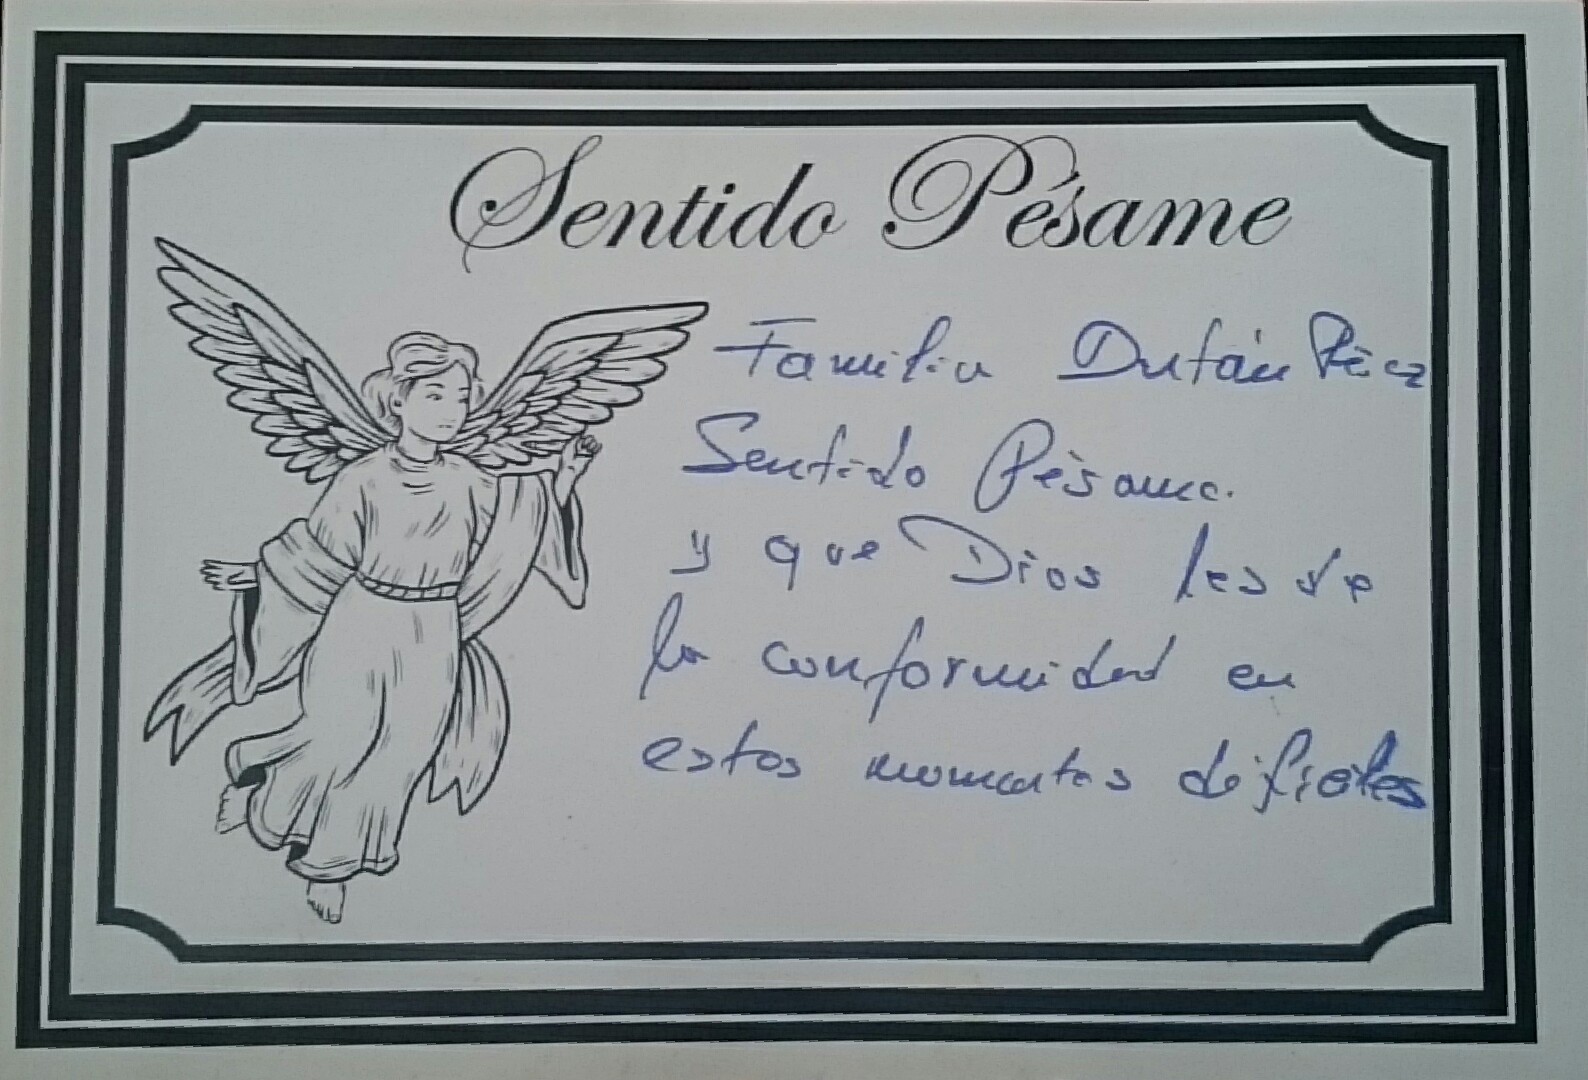 Sentido Pésame
Familia Dután
Sentido Pésame.
y que Dios les de
la conformidad en
estos momentos dificiles